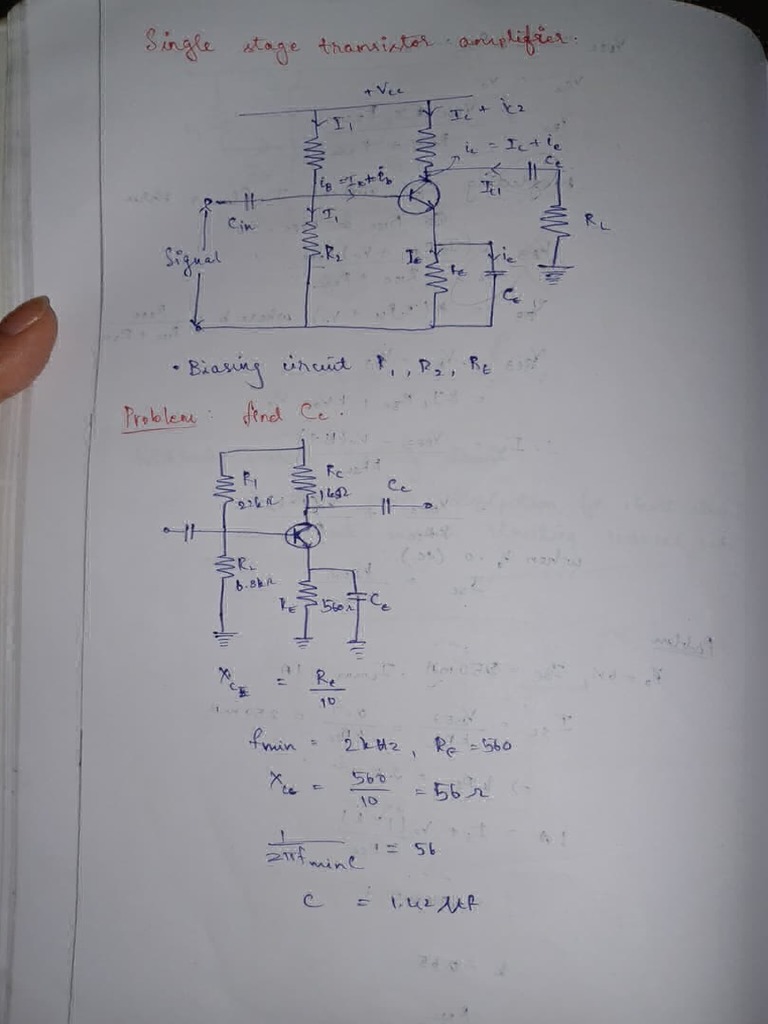 Single stage transistor amplifier.
+Vcc
I1
Ic + ic2
iB = IB + ib
ic = Ic + ie
Cc
Ic1
Cin
I1
R2
RL
Signal
IE
RE
ie
CE
• Biasing circuit R1, R2, RE
Problem: find Cc.
R1
Rc
1kΩ
Cc
R2
6.8kΩ
RE
560Ω
CE
XCE = Re/10
fmin = 2kHz, RE = 560
Xce = 560/10 = 56Ω
1/2πfminC = 56
C = 1.42 μF